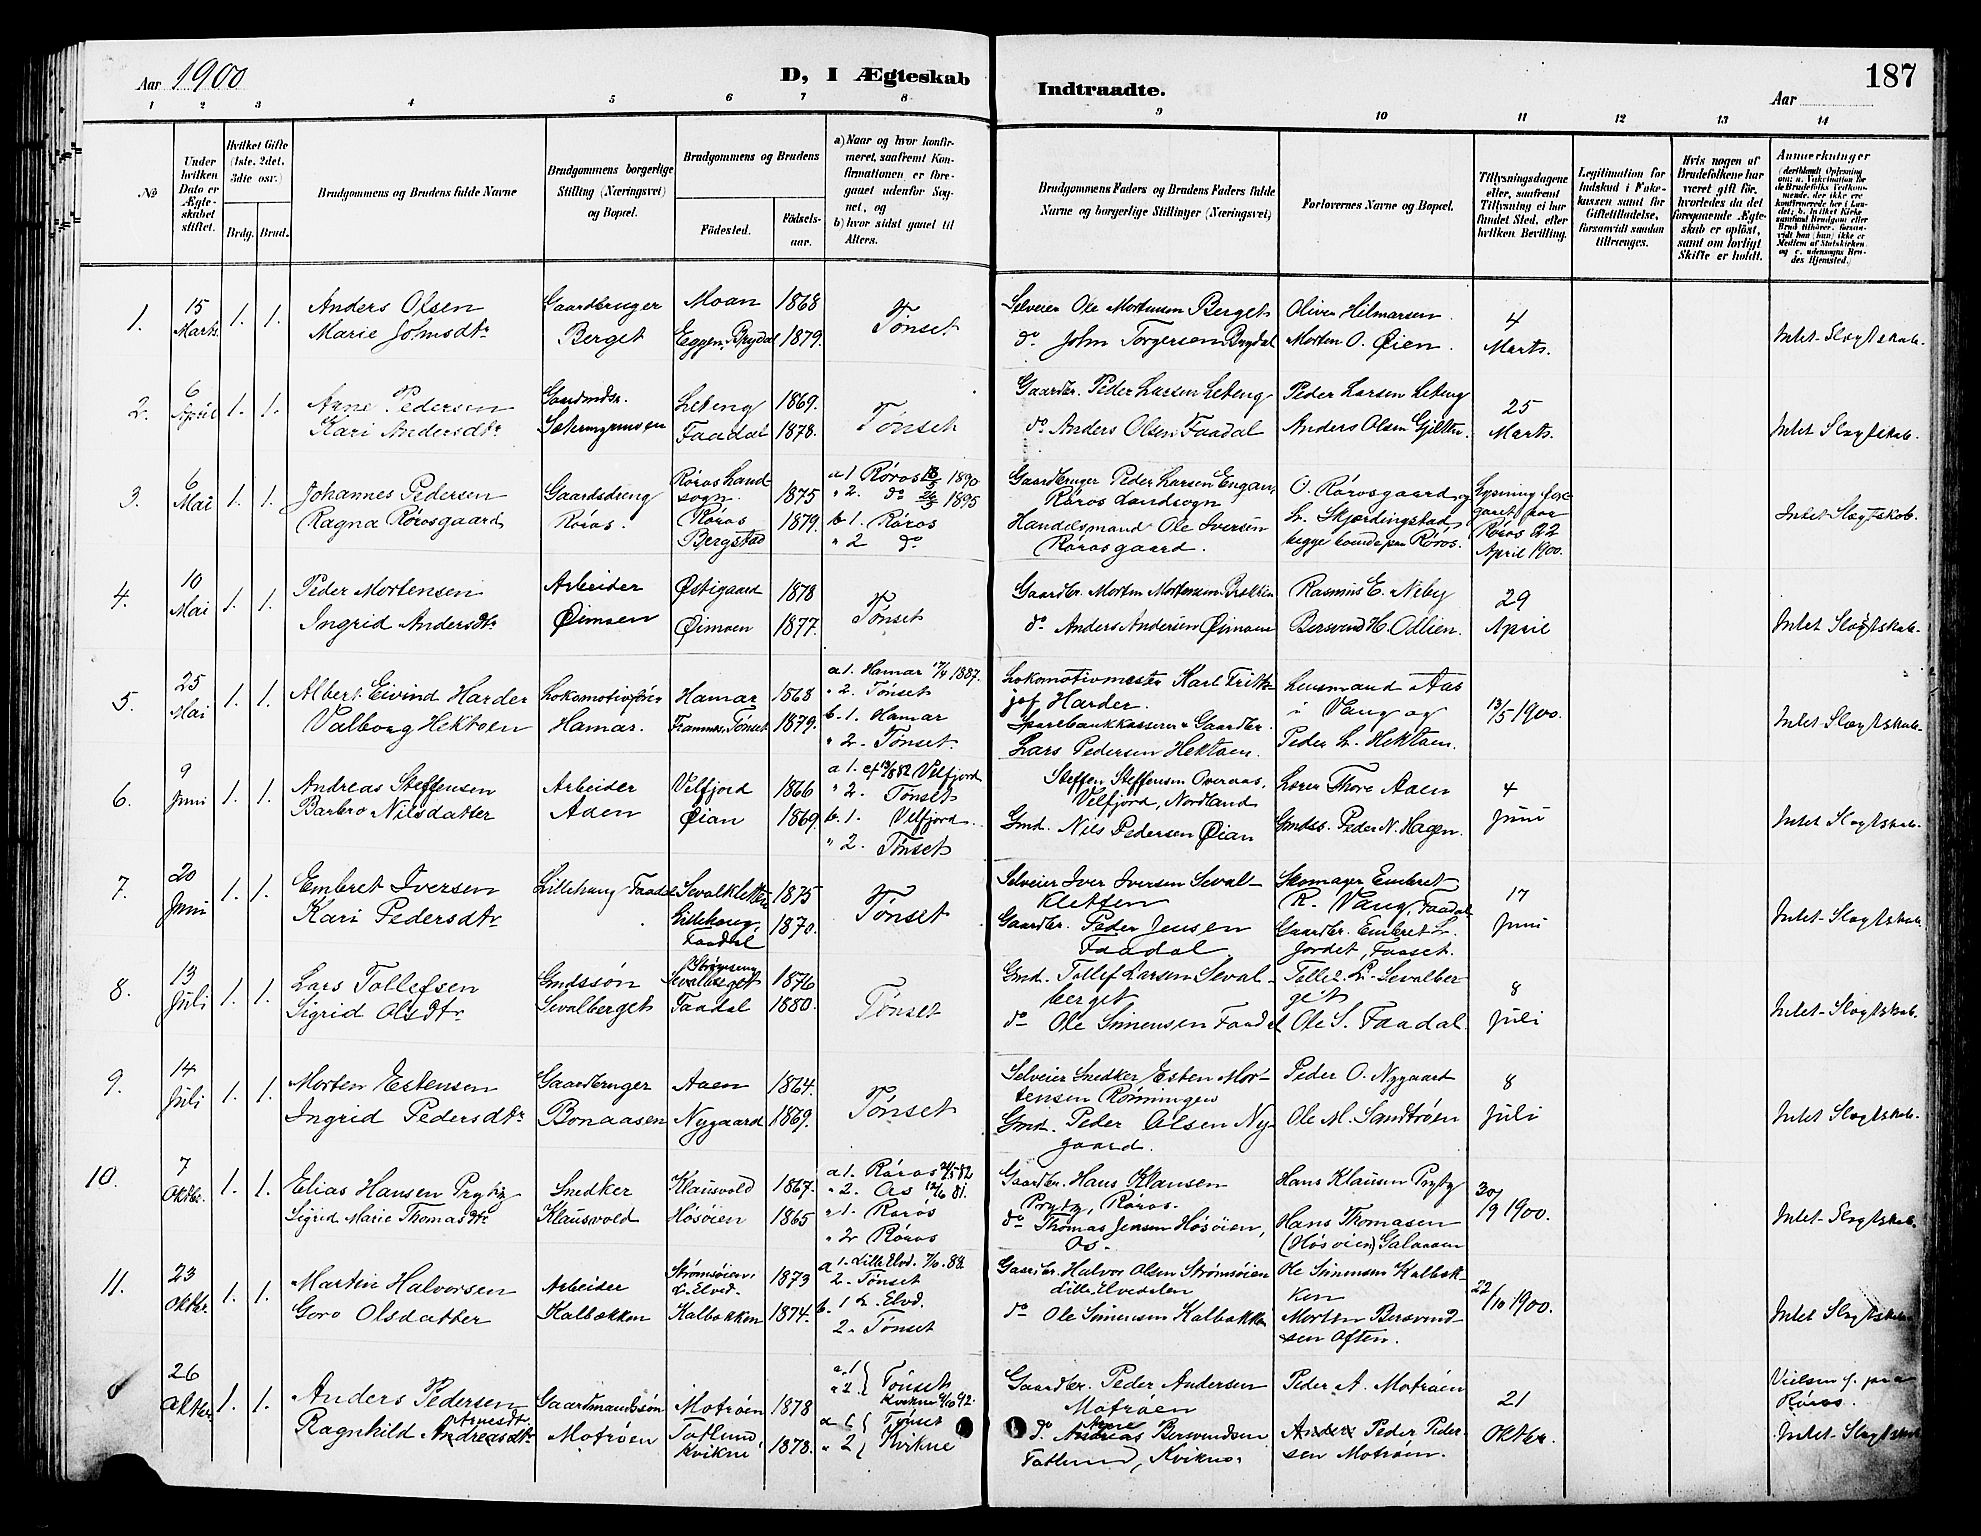 Aar 1900
D, I Ægteskab
Indtraadte.
187
Aar
1 2 3 4 5 6 7 8 9 10 11 12 13 14
No
Under hvilken Dato er Ægteskabet stiftet.
Hvilket Gifte (1ste, 2det, 3die osv.)
Brdg. Brud.
Brudgommens og Brudens fulde Navne
Brudgommens borgerlige Stilling (Næringsvei) og Bopæl.
Brudgommens og Brudens
Fødested.
Fødselsaar.
a) Naar og hvor konfirmeret, saafremt Konfirmationen er foregaaet udenfor Sognet, og
b) hvor sidst gaaet til Alters.
Brudgommens Faders og Brudens Faders fulde Navne og borgerlige Stillinger (Næringsvei)
Forlovernes Navne og Bopæl.
Tillysningsdagene eller, saafremt Tillysning ei har fundet Sted, efter hvilken Bevilling.
Legitimation for Indskud i Enkekassen samt for Giftetilladelse, forsaavidt saadan tiltrænges.
Hvis nogen af Brudefolkene har været gift før, hvorledes da det foregaaende Ægteskab er opløst, samt om lovligt Skifte er holdt.
Anmærkninger
1. 15 Marts 1. 1. Anders Olsen Gaardbruger Moan 1868 Tønset Selveier Ole Mortensen Berget Oliver Hilmarsen. 4 Marts.
Marie Johnsdtr Berget Eggen Brydal 1879. do John Torgersen Brydal Morten O. Øien. Intet Slægtskab.
2. 6 April 1. 1. Arne Pedersen Gaardmdsn. Leteng 1869. Tønset Gaardbr. Peder Larsen Leteng Peder Larsen Leteng 25 Marts.
Kari Andersdtr Faadal 1878. do Anders Olsen Faadal Anders Olsen Intet Slægtskab.
3. 6 Mai 1. 1. Johannes Pedersen Gaardsdreng Røros Landsogn. 1875 a 1. Røros 1890 Gaardbruger Peder Larsen Engan, Røros Landsogn O. Rørosgaard og Lysning foregaaet paa
Ragna Rørosgaard Røros. Røros Bergstad 1879. " 2. do 1895 b. 1. Røros " 2 do Handelsmand Ole Iversen Rørosgaard. L. Skjærdingstad begge boende paa Røros. Røros 22 April 1900. Intet Slægtskab.
4. 10 Mai 1. 1. Peder Mortensen Arbeider Østigaard 1878 Tønset Gaardbr. Morten Mortensen Brækken Rasmus E. Neby 29 April
Ingrid Andersdtr Øimoen Øimoen 1877. do Anders Andersen Øimoen Bersvend H. Odlien. Intet Slægtskab.
5. 25 Mai 1. 1. Albert Eivind Harder Lokomotivfører Hamar 1868 a 1. Hamar 1887. " 2. Tønset Lokomotivmester Karl Frithjof Harder. Lensmand Aas i Vang og 13/5 1900.
Valborg Hektoen Hamar. Tønset 1879. b. 1. Hamar " 2. Tønset. Sparebankkasserer & Gaardbr. Lars Pedersen Hektoen. Peder L. Hektoen. Intet Slægtskab.
6. 9 Juni 1. 1. Andreas Steffensen Arbeider Velfjord 1866 a 1. Velfjord " 2. Tønset Steffen Steffensen Overaas, Velfjord, Nordland Lærer Thore Aaen 4 Juni
Barbro Nilsdatter Aaen Øian 1869. b. 1. Velfjord. " 2. Tønset Gmd. Nils Pedersen Øian Gmdss. Peder N. Hagen. Intet Slægtskab.
7. 20 Juni 1. 1. Embret Iversen Lillehaug Faadal Sevalkletten 1875 Tønset Selveier Iver Iversen Sevalkletten Skomager Embret R. Vang, Faadal 17 Juni
Kari Pedersdtr Lillehaug, Faadal 1870. Gaardbr. Peder Jensen Faadal Gaardbr. Embret L. Jordet, Faaset. Intet Slægtskab.
8. 13 Juli 1. 1. Lars Tollefsen Gmdssøn Sevalberget 1876 Tønset Gmd. Tollef Larsen Sevalberget Tollef L. Sevalberget 8 Juli
Sigrid Olsdtr Sevalberget Faadal 1880. do Ole Simensen Faadal Ole S. Faadal. Intet Slægtskab.
9. 14 Juli 1. 1. Morten Estensen Gaardbruger Aaen 1864. Tønset Selveier Snedker Esten Mortensen Rønningen Peder O. Nygaard 8 Juli
Ingrid Pedersdtr Bonaasen Nygaard 1869. Gmd. Peder Olsen Nygaard. Ole M. Sandtrøen Intet Slægtskab.
10. 7 Oktbr. 1. 1. Elias Hansen Prytz Snedker Klausvold 1867. a 1. Røros 82 " 2. Os 81. Gaardbr. Hans Klausen Prytz, Røros. Hans Klausen Prytz 30/9 1900.
Sigrid Marie Thomasdtr Klausvold Høsøien 1865 " 1 Røros " 2 Røros do Thomas Jensen Høsøien, Os. Hans Thomasen (Høsøien) Galaaen Intet Slægtskab.
11. 23 Oktbr. 1. 1. Martin Halvorsen Arbeider Strømsøien, L. Elved. 1873 a 1. Lille Elvd. 88. 2. Tønset Gaardbr. Halvor Olsen Strømsøien Lille Elvedalen Ole Simensen Kalbækken 22/10 1900.
Goro Olsdatter Kalbækken Kalbækken 1874. b. 1 L. Elvd. 2. Tønset do Ole Simensen Kalbækken Morten Bersvendsen Aften. Intet Slægtskab.
26 Oktbr 1. 1. Anders Pedersen Gaardmandssøn Motrøen 1878 a 1 " 2 Tønset Kvikne 92. Gaardbr. Peder Andersen Motrøen Peder A. Motrøen 21 Oktbr. Vielsen f. paa Røros.
Ragnhild Andreasdtr Arnesdtr. Motrøen Totlund Kvikne 1878. Tønset " 2 Kvikne do Andreas Arne Bersvendsen Totlund, Kvikne. Anders Peder Pedersen Motrøen. Intet Slægtskab